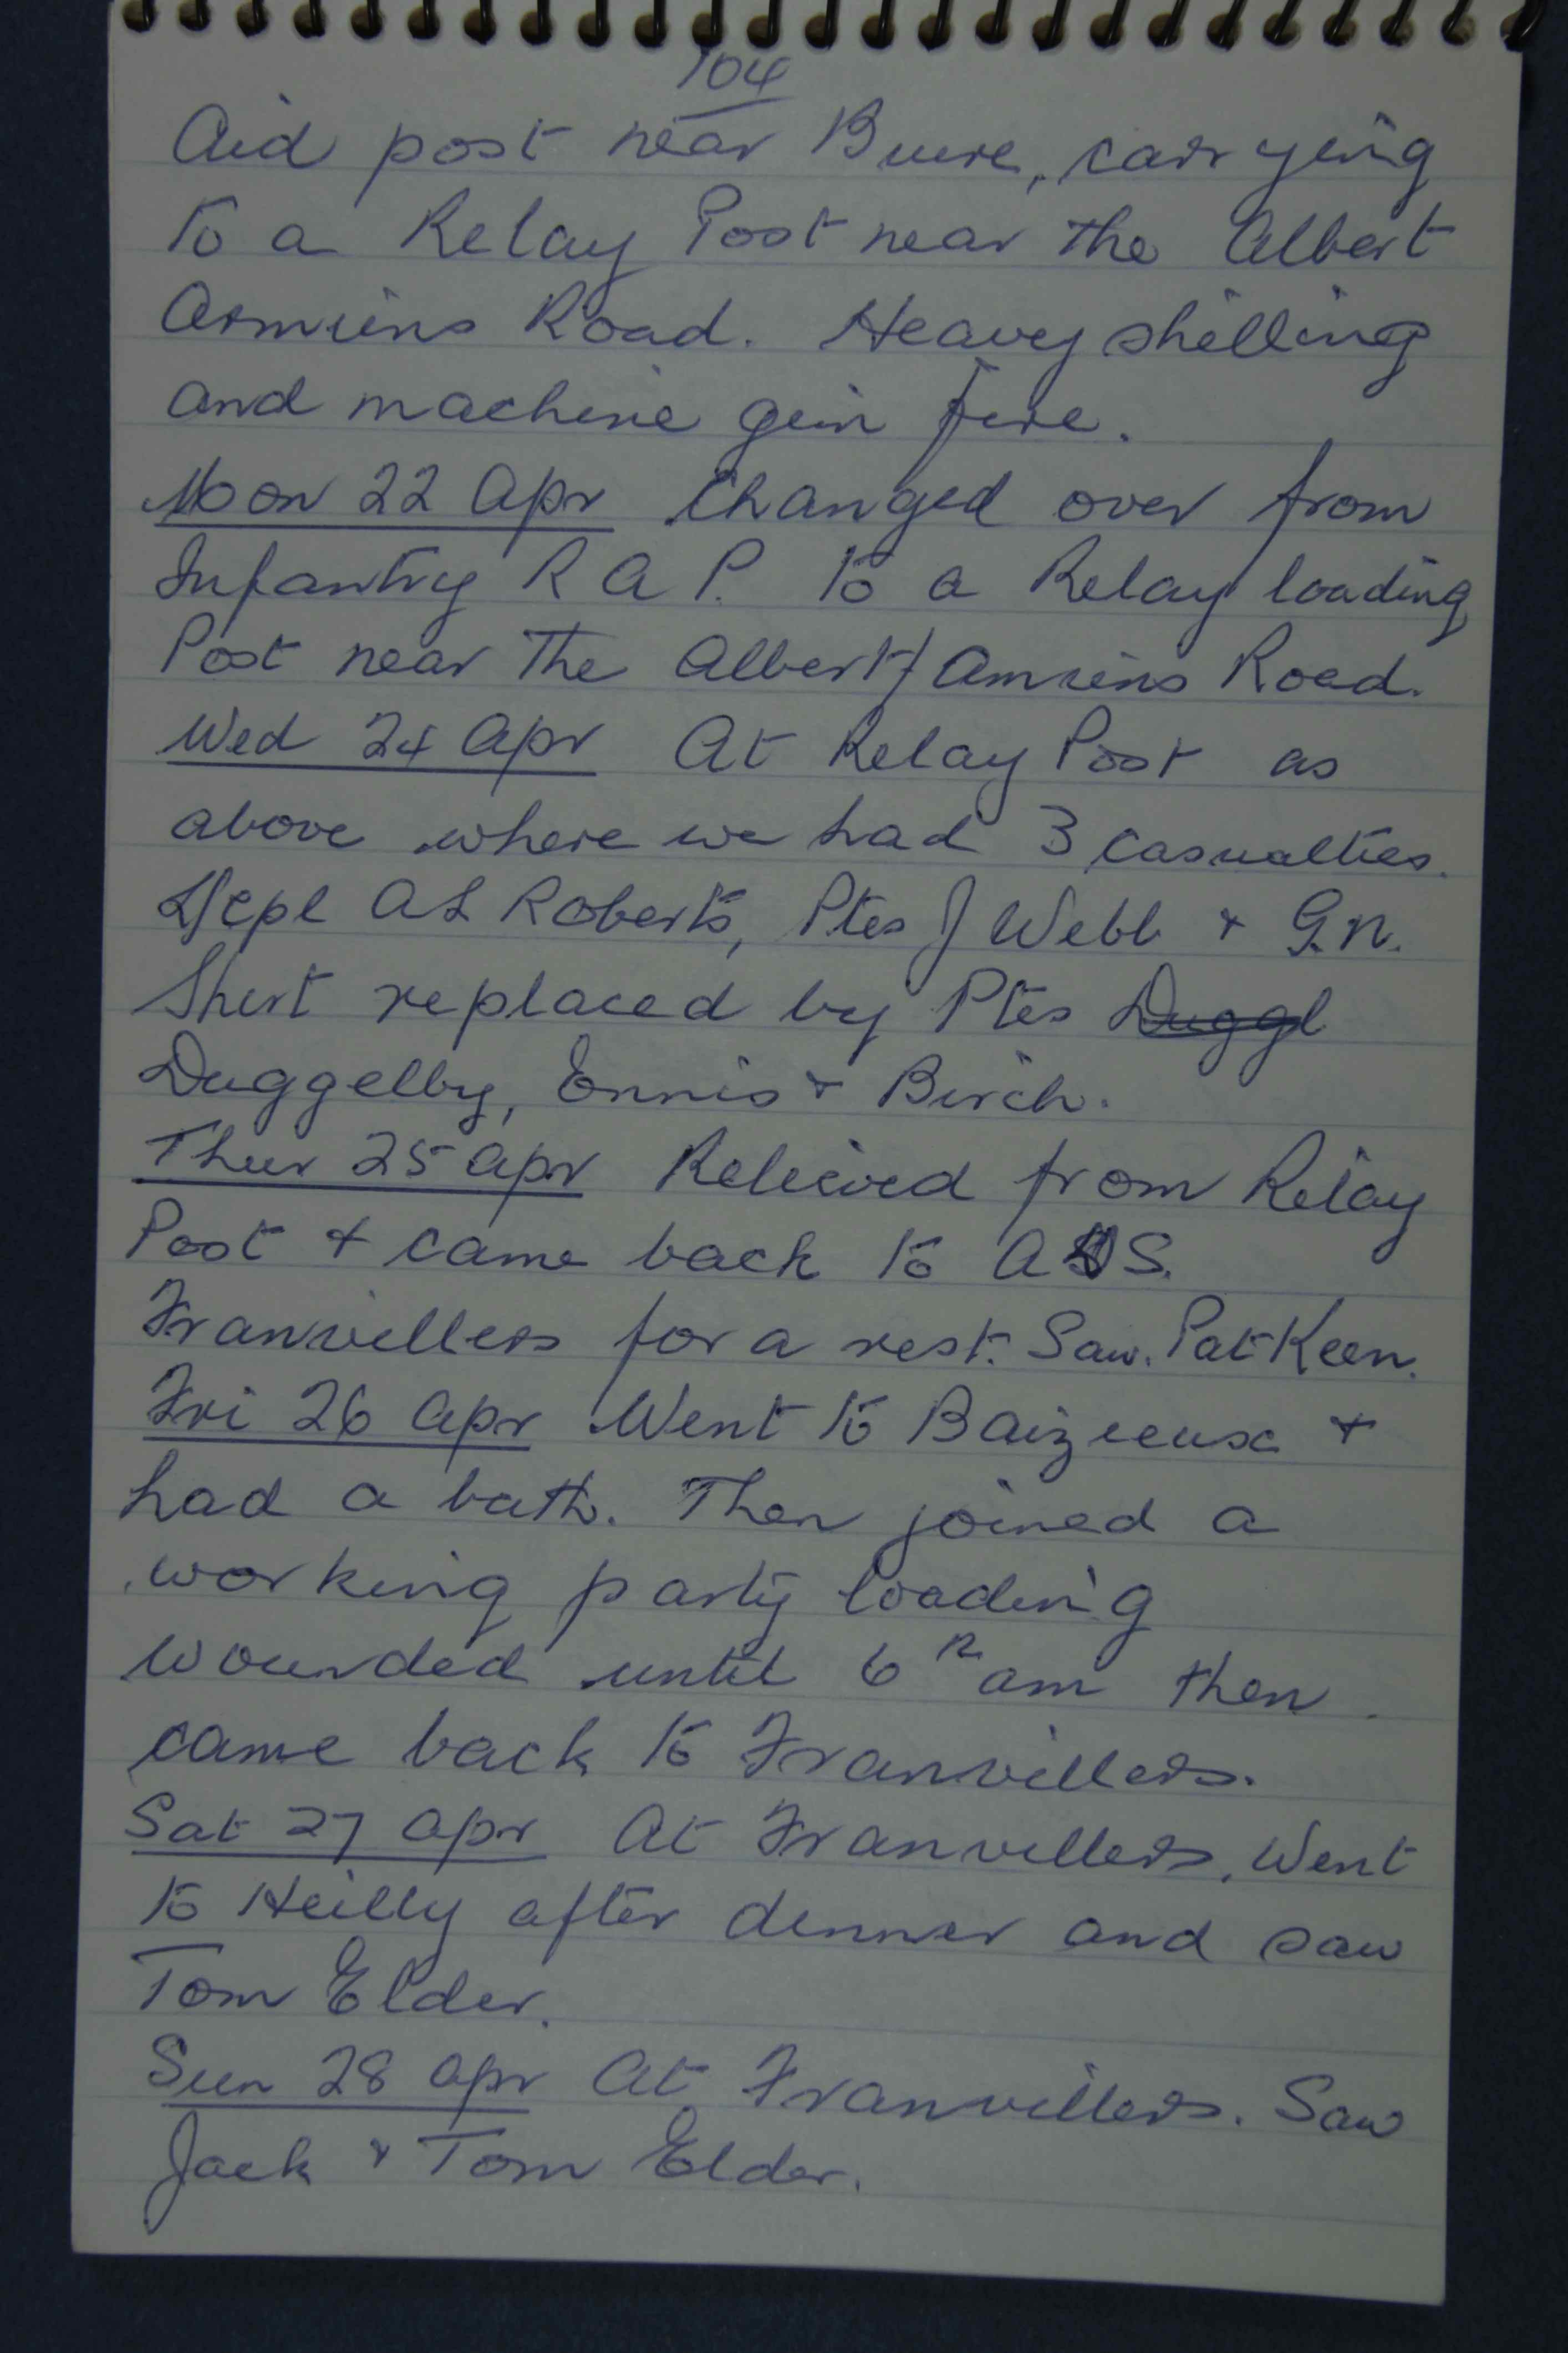 104
Aid post near Buire, carrying
to a Relay Post near the Albert
Armiens Road. Heavy shelling
and machine gun fire.
Mon 22 Apr Changed over from
Infantry R A P. to a Relay loading
Post near the Albert/Amiens Road.
Wed 24 Apr At Relay Post as
above where we had 3 casualties.
L/cpl A L Roberts, Ptes J Webb + G.N.
Shirt replaced by Ptes Duggl
Duggelby, Ennis + Birch.
Thur 25 Apr Relieved from Relay
Post + came back to A D S.
Franvillers for a rest. Saw Pat Keen.
Fri 26 Apr Went to Baizieux +
had a bath. Then joined a
working party loading
wounded until 6 am then
came back to Franvillers.
Sat 27 Apr At Franvillers, Went
to Heilly after dinner and saw
Tom Elder.
Sun 28 Apr At Franvillers. Saw
Jack + Tom Elder.